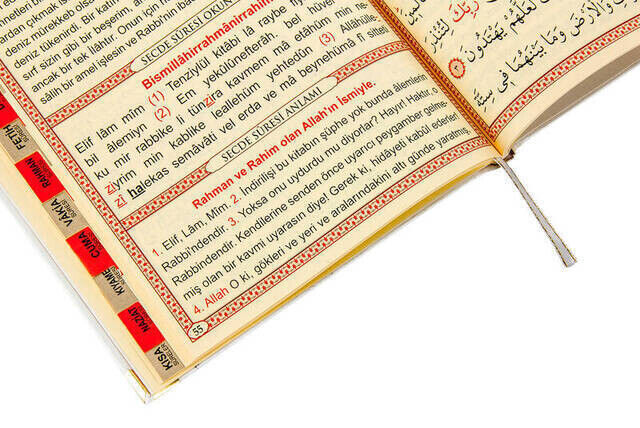 deniz tükenirdi. Bir katı
deniz mürekkep olsa
sırf sizin gibi bir beşerim, an
ancak bir tek ilâhtır. Onun için h
sâlih bir amel işlesin ve Rabbı'nın ibad
SECDE SÛRESİ OKUN
Bismillâhirrahmânirrahîm
Elif lâm mîm (1) Tenzîylül kitâbi lâ raybe fî
bil âlemiyn (2) Em yekûlûnefterâh. bel hüvel
ku mir rabbike li tünzira kavmem mâ etâhüm min ne
ziyrim min kablike leallehüm yehtedûn (3) Allâhülle
zî halekas semâvâti vel erda ve mâ beynehümâ fî sitteti
SECDE SÛRESİ ANLAMI
Rahman ve Rahim olan Allah'ın İsmiyle.
1. Elif, Lâm, Mîm. 2. İndirilişi bu kitabın şüphe yok bunda âlemlerin
Rabbi'ndendir. 3. Yoksa onu uydurdu mu diyorlar? Hayır! Haktır, o
Rabbindendir. Kendilerine senden önce uyarıcı peygamber gelme-
miş olan bir kavmi uyarasın diye! Gerek ki, hidâyeti kabûl ederler!
4. Allah O ki, gökleri ve yeri ve aralarındakini altı günde yaratmış,
55
FETİH
SÛRESİ
RAHMAN
VAKIA
SÛRESİ
CUMA
KIYAME
NAZİAT
KISA
SÛRELER
رَبِّكَ لِتُنْذِرَ
لَعَلَّهُمْ يَهْتَدُونَ
وَالْأَرْضَ وَمَا بَيْنَهُمَا فِي سِتَّةِ